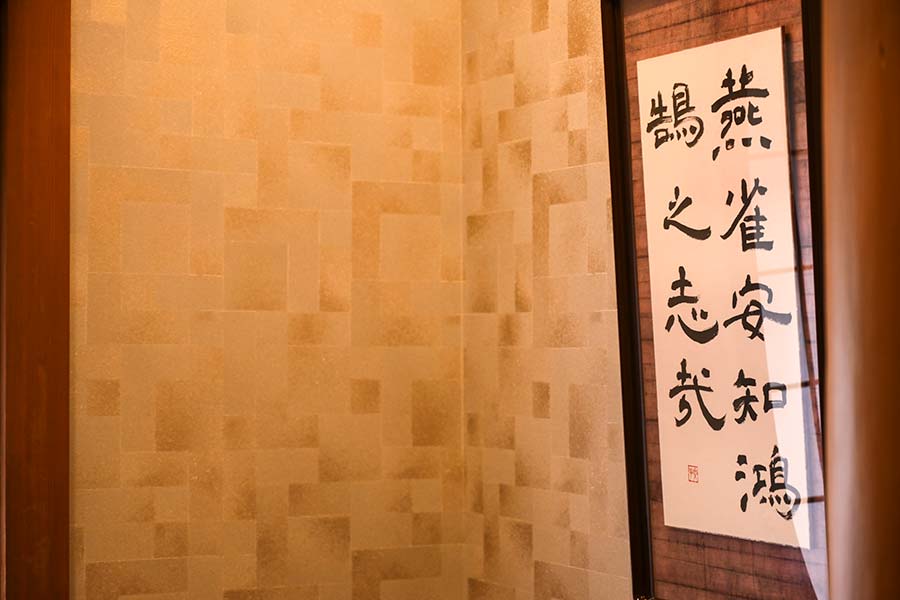 燕雀安知鴻
鵠之志哉